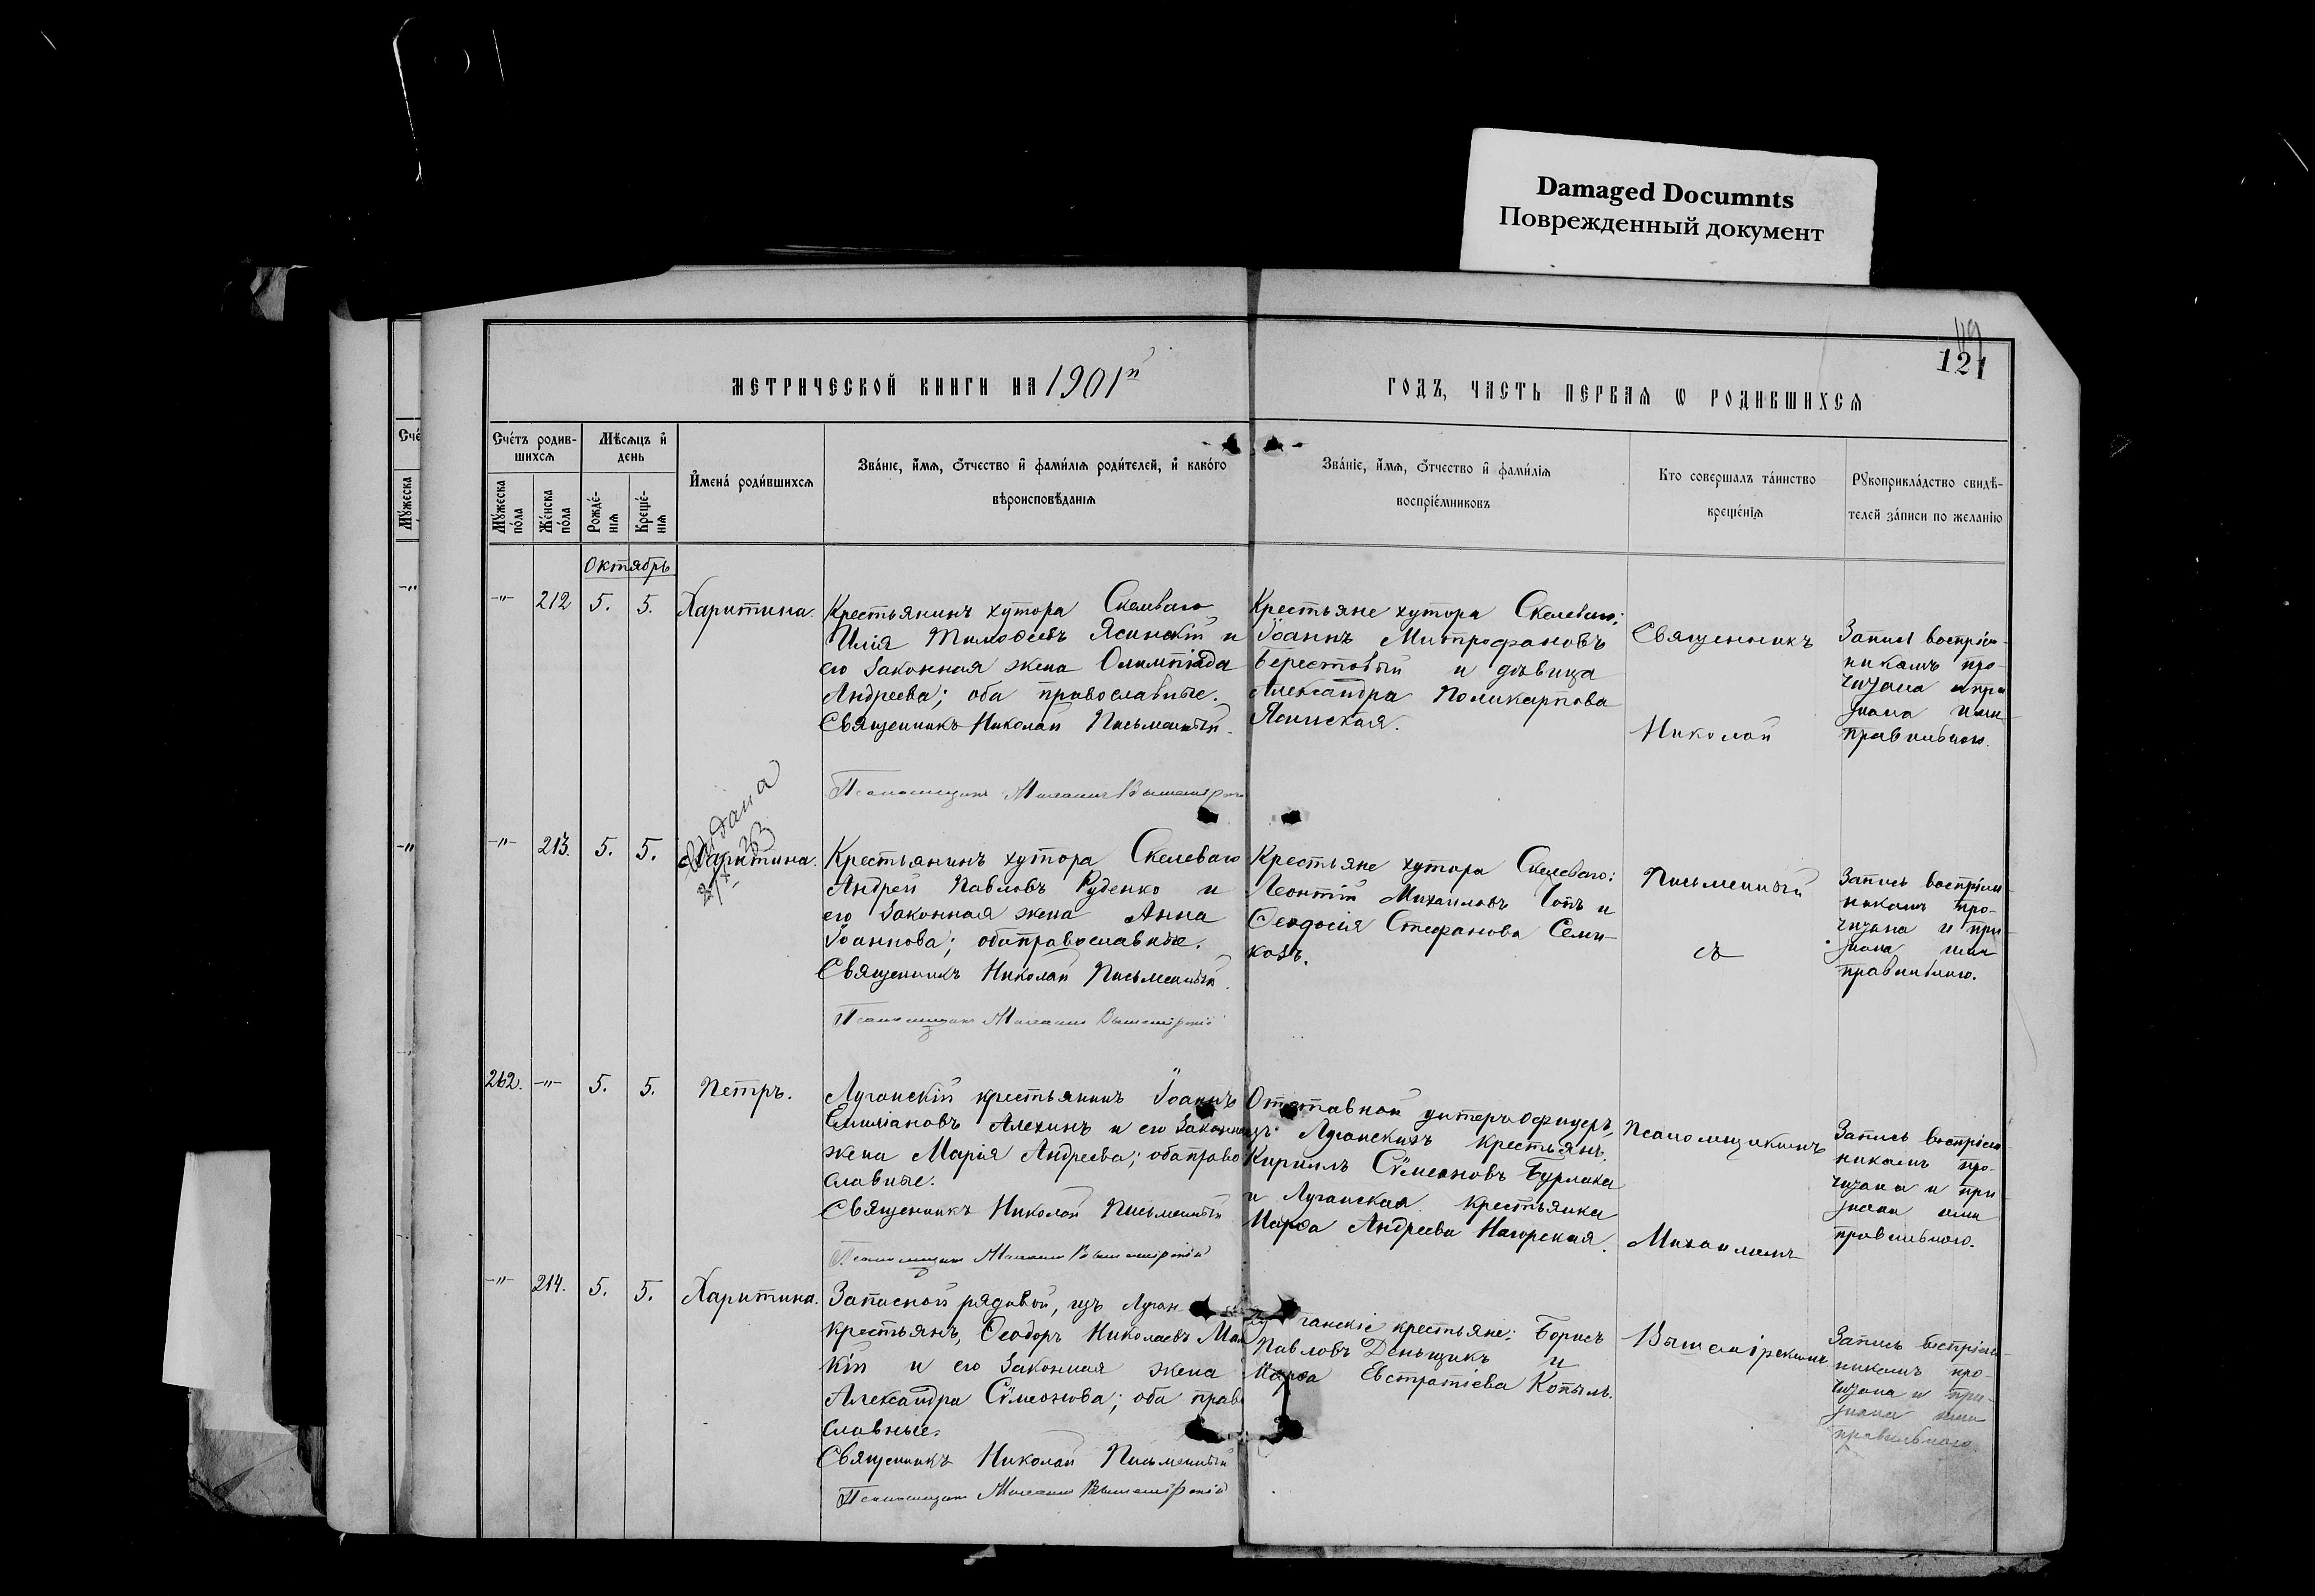 Damaged Documnts
Поврежденный документ
121
МЕТРИЧЕСКОЙ КНИГИ НА 1901й
ГОДЪ, ЧАСТЬ ПЕРВАЯ Ѡ РОДИВШИХСЯ
Счétъ родив-
шихся
Мѣсяцъ и
день
Мужеска
пола
Женска
пола
Рожде-
нія
Креще-
нія
Имена родившихся
Званіе, имя, отчество и фамилія родителей, и какого
вѣроисповѣданія
Званіе, имя, отчество и фамилія
воспріемниковъ
Кто совершалъ таинство
крещенія
Рукоприкладство свидѣ-
телей записи по желанію
Октябрь
-"- 212 5. 5. Харитина.
Крестьянинъ хутора Скелеваго
Илія Тимоѳеевъ Ясинскій и
его законная жена Олимпіада
Андреева; оба православные.
Священникъ Николай Письменный.
Псаломщикъ Михаилъ
Крестьяне хутора Скелеваго:
Іоаннъ Митрофановъ
Берестовый и дѣвица
Александра Поликарпова
Ясинская.
Священникъ
Николай
Запись воспріем-
никамъ про-
читана и при
знана ими
правильною.
Выдана
-"- 213. 5. 5. Харитина.
Крестьянинъ хутора Скелеваго
Андрей Павловъ Руденко и
его законная жена Анна
Іоаннова; оба православные.
Священникъ Николай Письменный.
Псаломщикъ Михаилъ Вышемірскій
Крестьяне хутора Скелеваго:
Леонтій Михаиловъ и
Ѳеодосія Стефанова Семи-
ковъ.
Письменный
съ
Запись воспріем-
никамъ про-
читана и при
знана ими
правильною.
262. -"- 5. 5. Петръ.
Луганскій крестьянинъ Іоаннъ
Емиліановъ Алехинъ и его законная
жена Марія Андреева; оба право
славные.
Священникъ Николай Письменный
Псаломщикъ Михаилъ Вышемірскій
Отставной унтеръ офицеръ,
изъ Луганскихъ крестьянъ,
Кириллъ Сѵмеоновъ Бурлака
и Луганская крестьянка
Марѳа Андреева Нагорская.
Псаломщикомъ
Михаиломъ
Запись воспріем
никамъ про-
читана и при
знана ими
правильною.
-"- 214. 5. 5. Харитина.
Запасной рядовой, изъ Луган-
крестьянъ, Ѳеодоръ Николаевъ
кій и его законная жена
Александра Сѵмеонова; оба прав
славные.
Священникъ Николай Письменный
Псаломщикъ Михаилъ Вышемірскій
ганскіе крестьяне: Борисъ
Павловъ Деньщикъ и
Марѳа Евстратіева Копыль.
Вышемірскимъ
Запись воспріем-
никамъ про-
читана и при-
знана ими
правильною.